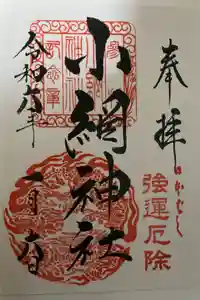 奉拝
強運厄除
小網神社
令和六年
一月